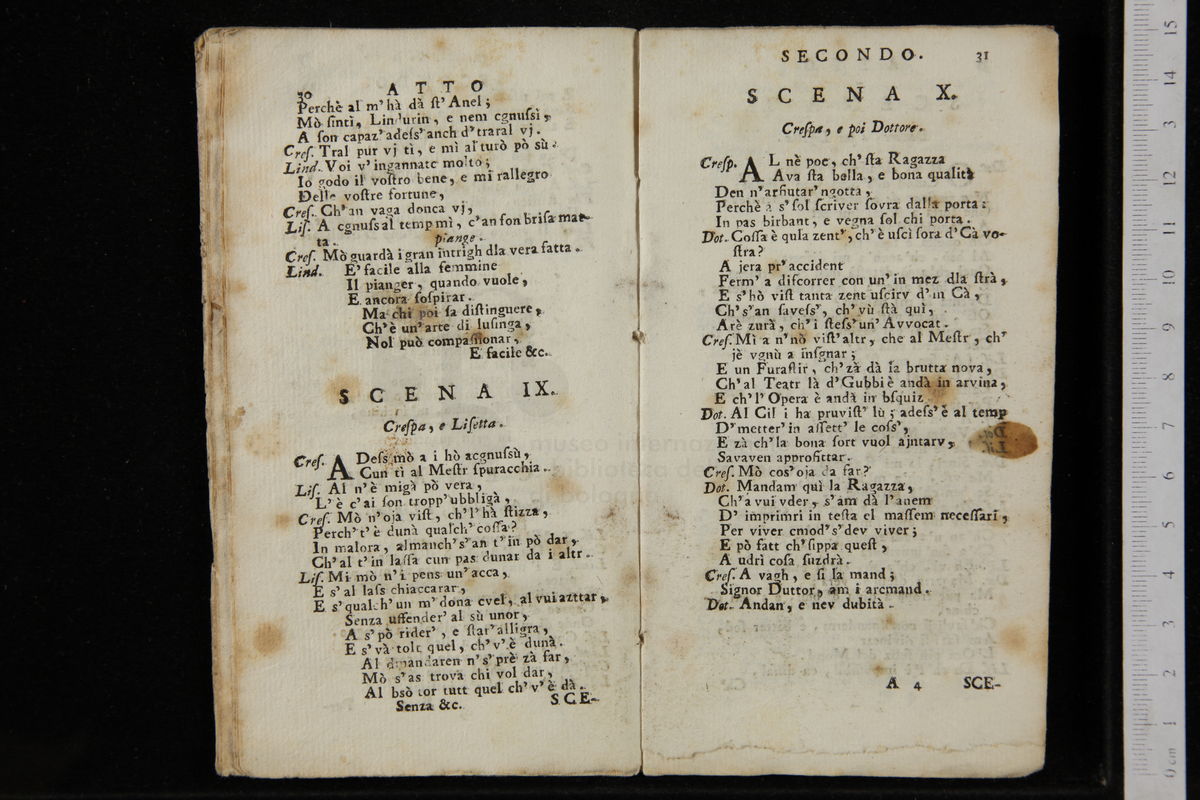 30 ATTO
Perchè al m'hà dà ſt'Anel;
Mò ſintì, Lindurin, e nem cgnuſsì,
A ſon capaz'adeſs'anch d'traral vj.
Creſ. Tral pur vj tì, e mì al turò pò sù.
Lind. Voi v'ingannate molto;
Io godo il voſtro bene, e mi rallegro
Delle voſtre fortune,
Creſ. Ch'an vaga donca vj,
Liſ. A cgnuſs al temp mì, c'an ſon briſa mat-
ta. piange.
Creſ. Mò guardà i gran intrigh dla vera fatta.
Lind. E' facile alla femmine
Il pianger, quando vuole,
E ancora ſoſpirar.
Ma chi poi ſa diſtinguere,
Ch'è un'arte di luſinga,
Nol può compaſſionar,
E facile &c.
SCENA IX.
Creſpa, e Liſetta.
Creſ. ADeſs mò a i hò acgnuſsù,
Cun tì al Meſtr ſpuracchia.
Liſ. Al n'è migà pò vera,
L'è c'ai ſon tropp'ubbligà,
Creſ. Mò n'oja viſt, ch'l'hà ſtizza,
Perch't'è dunà qualch'coſſa?
In malora, almanch's'an t'in pò dar,
Ch'al t'in laſſa cun pas dunar da i altr.
Liſ. Mi mò n'i pens un'acca,
E s'al laſs chiaccarar,
E s'qualch'un m'dona cvel, al vui azttar,
Senza uffender'al sù unor,
A s'pò rider', e ſtar'alligra,
E s'và tolt quel, ch'v'è dunà.
Al dmandaren n's'prè zà far,
Mò s'as trova chi vol dar,
Al bsò tor tutt quel ch'v'è dà.
Senza &c. SCE-
SECONDO. 31
SCENA X.
Creſpa, e poi Dottore.
Creſp. AL nè poc, ch'ſta Ragazza
Ava ſta bella, e bona qualità
Den n'arfiutar'ngotta,
Perchè a s'ſol ſcriver ſovra dalla porta:
In pas birbant, e vegna ſol chi porta.
Dot. Coſſa è qula zent', ch'è uſcì fora d'Cà vo-
ſtra?
A jera pr'accident
Ferm'a diſcorrer con un'in mez dla ſtrà,
E s'hò viſt tanta zent uſcirv d'in Cà,
Ch's'an ſaveſs', ch'vù ſtà quì,
Arè zurà, ch'i ſteſs'un'Avvocat.
Creſ. Mì a n'nò viſt'altr, che al Meſtr, ch'
jè vgnù a inſgnar;
E un Furaſtir, ch'zà dà la brutta nova,
Ch'al Teatr là d'Gubbi è andà in arvina,
E ch'l'Opera è andà in bſquiz.
Dot. Al Cil i ha pruviſt'lù; adeſs'è al temp
D'metter'in aſſett'le coſs',
E zà ch'la bona ſort vuol ajntarv,
Savaven approfittar.
Creſ. Mò cos'oja da far?
Dot. Mandam quì la Ragazza,
Ch'a vui vder, s'am dà l'anem
D'imprimri in teſta el maſſem neceſſarì,
Per viver cmod's'dev viver;
E pò fatt ch'ſippa queſt,
A udrì coſa ſuzdrà.
Creſ. A vagh, e ſi la mand;
Signor Duttor, am i arcmand.
Dot. Andan, e nev dubità.
A 4 SCE-
15
14
13
12
11
10
9
8
7
6
5
4
3
2
1
0 cm